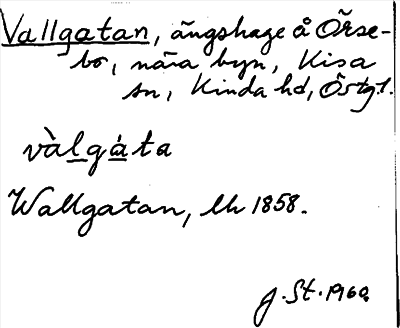 Vallgatan, ängshage å Örse-
bo, nära byn, Kisa
sn, Kinda hd, Östgtl.
vàlgáta
Wallgatan, lh 1858.
J. St. 1960